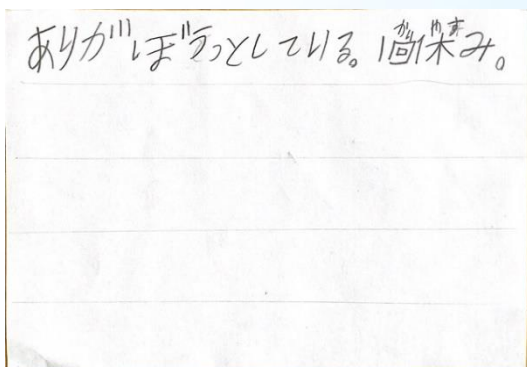 ありがぼうっとしている。休み。